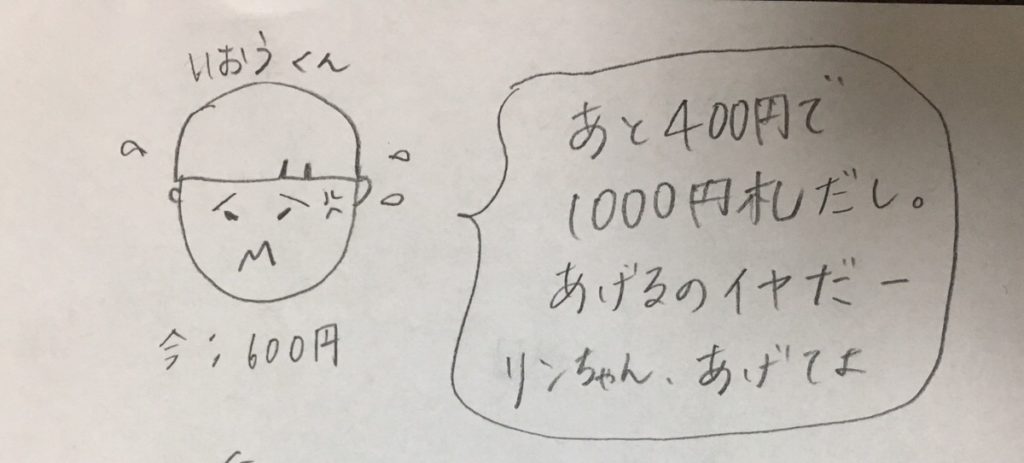 いおうくん
あと400円で
1000円札だし。
あげるのイヤだー
リンちゃん、あげてよ
今；600円